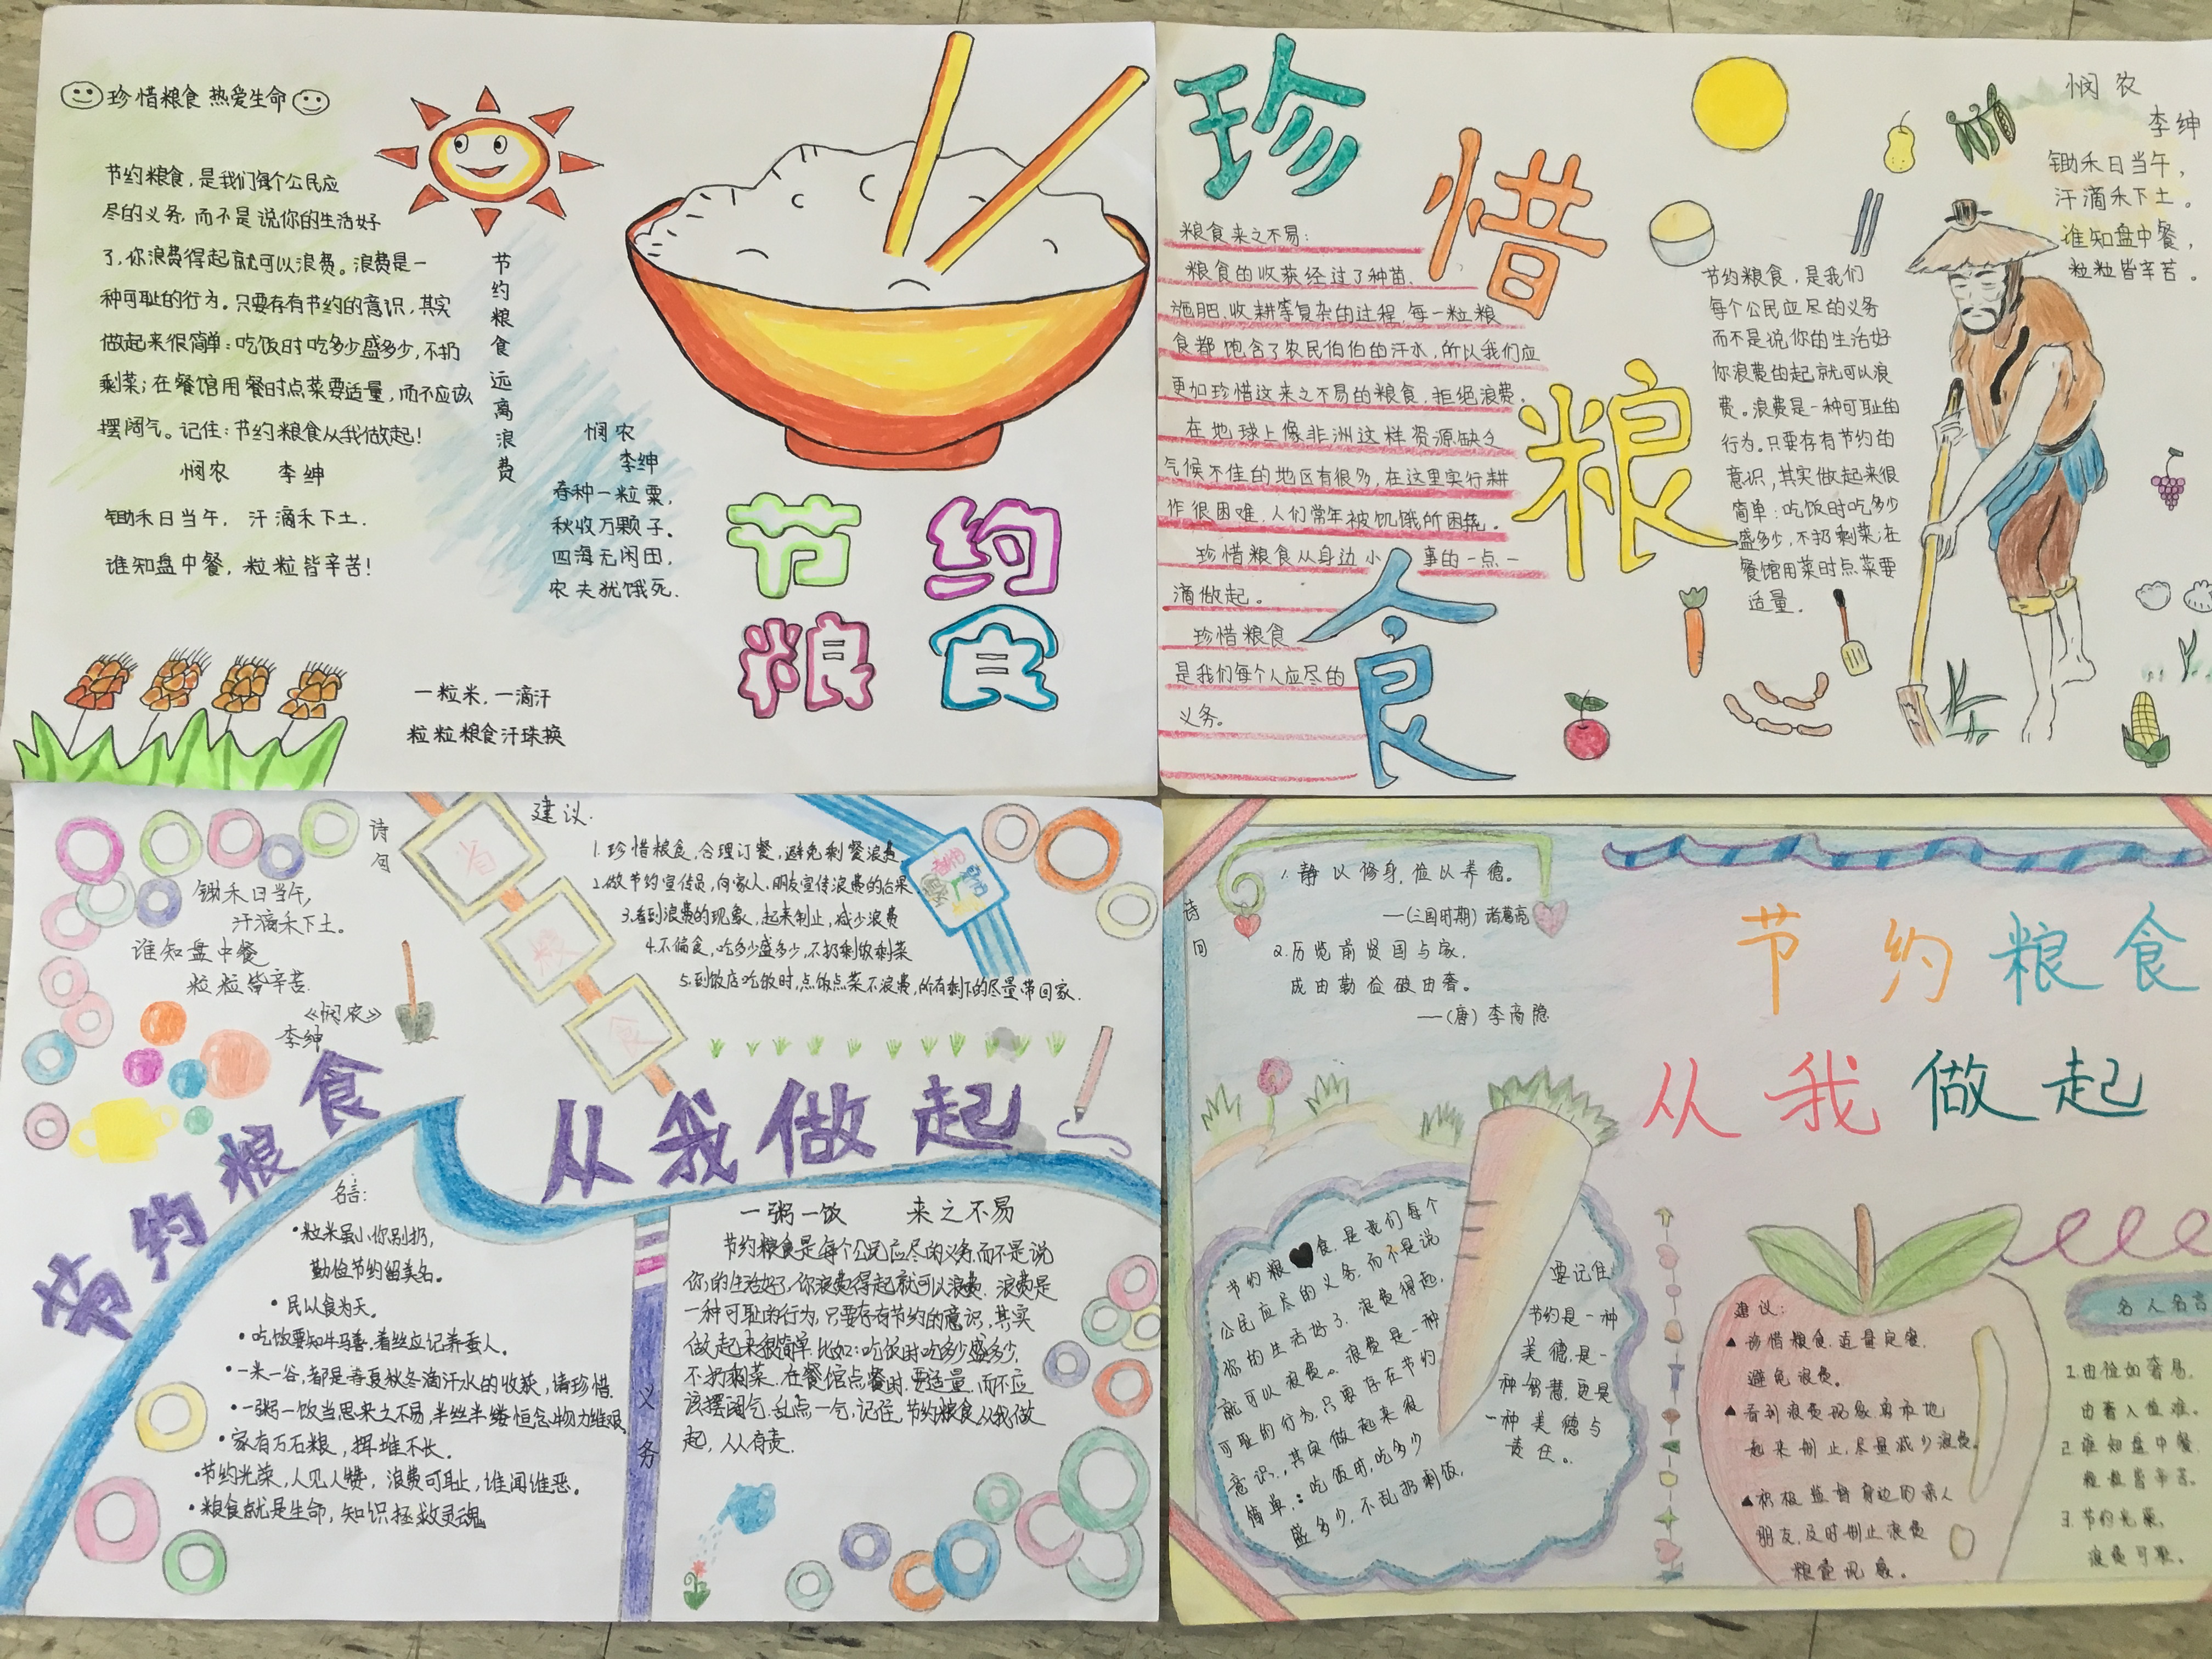 珍惜粮食 热爱生命
节约粮食，是我们每个公民应
尽的义务，而不是说你的生活好
了，你浪费得起就可以浪费。浪费是一
种可耻的行为。只要存有节约的意识，其实
做起来很简单：吃饭时吃多少盛多少，不扔
剩菜；在餐馆用餐时点菜要适量，而不应该
摆阔气。记住：节约粮食从我做起！
悯农 李绅
锄禾日当午，汗滴禾下土．
谁知盘中餐，粒粒皆辛苦！
节约粮食远离浪费
悯农
李绅
春种一粒粟，
秋收万颗子．
四海无闲田，
农夫犹饿死．
节约
粮食
一粒米，一滴汗
粒粒粮食汗珠换
珍
惜
粮
食
粮食来之不易：
粮食的收获经过了种苗．
施肥，收耕等复杂的过程，每一粒粮
食都饱含了农民伯伯的汗水，所以我们应
更加珍惜这来之不易的粮食，拒绝浪费．
在地球上像非洲这样资源缺乏
气候不佳的地区有很多，在这里实行耕
作很困难，人们常年被饥饿所困扰．
珍惜粮食从身边小事的一点一
滴做起。
珍惜粮食
是我们每个人应尽的
义务。
节约粮食，是我们
每个公民应尽的义务
而不是说你的生活好
你浪费的起就可以浪
费。浪费是一种可耻的
行为．只要存有节约的
意识，其实做起来很
简单：吃饭时吃多少
盛多少，不扔剩菜；在
餐馆用菜时点菜要
适量．
悯农
李绅
锄禾日当午，
汗滴禾下土。
谁知盘中餐，
粒粒皆辛苦。
诗句
锄禾日当午，
汗滴禾下土。
谁知盘中餐
粒粒皆辛苦．
《悯农》
李绅
省
粮
食
建议．
1．珍惜粮食，合理订餐，避免剩餐浪费．
2．做节约宣传员，向家人、朋友宣传浪费的后果．
3．看到浪费的现象，起来制止，减少浪费
4．不偏食，吃多少盛多少，不扔剩饭剩菜
5．到饭店吃饭时，点饭点菜不浪费，所有剩下的尽量带回家．
节约粮食
从我做起
名言：
•粒米虽小你别扔，
勤俭节约留美名。
•民以食为天。
•吃饭要知牛马善，着丝应记养蚕人。
•一米一谷，都是春夏秋冬滴汗水的收获，请珍惜．
•一粥一饭当思来之不易，半丝半缕恒念物力维艰
•家有万石粮，挥堆不长．
•节约光荣，人见人赞，浪费可耻，谁闻谁恶。
•粮食就是生命，知识拯救灵魂
义务
一粥一饭 来之不易
节约粮食是每个公民应尽的义务，而不是说
你的生活好了，你浪费得起就可以浪费．浪费是
一种可耻的行为，只要存有节约的意识，其实
做起来很简单．比如：吃饭时吃多少盛多少，
不扔剩菜．在餐馆点餐时．要适量．而不应
该摆阔气．乱点一气，记住，节约粮食，从我做
起，人人有责．
诗句
1．静以修身，俭以养德。
—(三国时期) 诸葛亮
2．历览前贤国与家，
成由勤俭破由奢。
——(唐) 李商隐
节约粮食
从我做起
节约粮食，是我们每个
公民应尽的义务．而不是说
你的生活好了．浪费得起，
就可以浪费。浪费是一种
可耻的行为．只要存在节约
意识．，其实做起来很
简单．：吃饭时，吃多少
盛多少，不乱扔剩饭．
要记住
节约是一种
美德，是一
种智慧，更是
一种美德与
责任。
建议：
▲珍惜粮食．适量定餐．
避免浪费。
▲看到浪费现象，勇敢地
起来制止，尽量减少浪费。
▲积极监督身边的亲人
朋友，及时制止浪费
粮食现象。
名人名言
1．由俭如奢易，
由奢入俭难．
2．谁知盘中餐．
粒粒皆辛苦。
3．节约光荣，
浪费可耻。